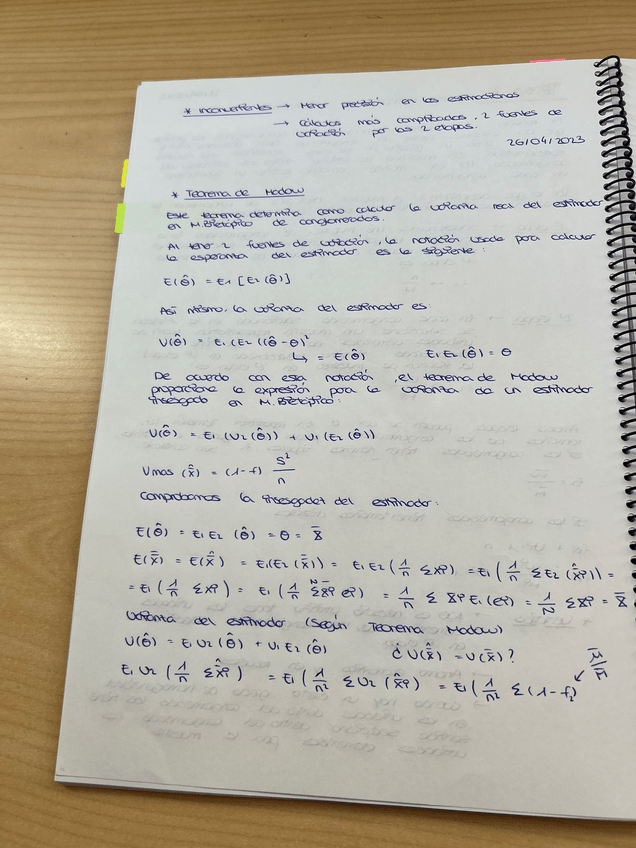 * Inconvenientes → Menor precisión en las estimaciones
→ Cálculos más complicados, 2 fuentes de
variación por las 2 etapas.
26/04/2023
* Teorema de Madow
Este teorema determina como calcular la varianza real del estimador
en M.Bietápico de conglomerados.
Al tener 2 fuentes de variación, la notación usada para calcular
la esperanza del estimador es la siguiente:
E(θ̂) = E1 [E2(θ̂)]
Así mismo, la varianza del estimador es:
V(θ̂) = E1(E2((θ̂ - θ)²
↳ = E(θ̂) E1E2(θ̂) = θ
De acuerdo con esta notación, el teorema de Madow
proporciona la expresión para la varianza de un estimador
insesgado en M.Bietápico:
V(θ̂) = E1(V2(θ̂)) + V1(E2(θ̂))
Vmas (x̂̄) = (1-f) S²/n
Comprobamos la insesgadez del estimador:
E(θ̂) = E1E2 (θ̂) = θ = X̄
E(x̄̄) = E(x̂̄) = E1(E2(x̂̄)) = E1E2(1/n Σxi) = E1(1/n ΣE2(x̂̄i)) =
= E1(1/n Σxi) = E1(1/n Σᴺ X̄i ei) = 1/n Σ X̄i E1(ei) = 1/N ΣX̄i = X̄
Varianza del estimador (según Teorema Madow)
V(θ̂) = E1V2(θ̂) + V1E2(θ̂) ¿V(x̂̄) = V(x̄)?
E1V2(1/n Σx̂̄i) = E1(1/n² ΣV2(x̂̄i)) = E1(1/n² Σ(1-f2) ↙ m̄/M̄